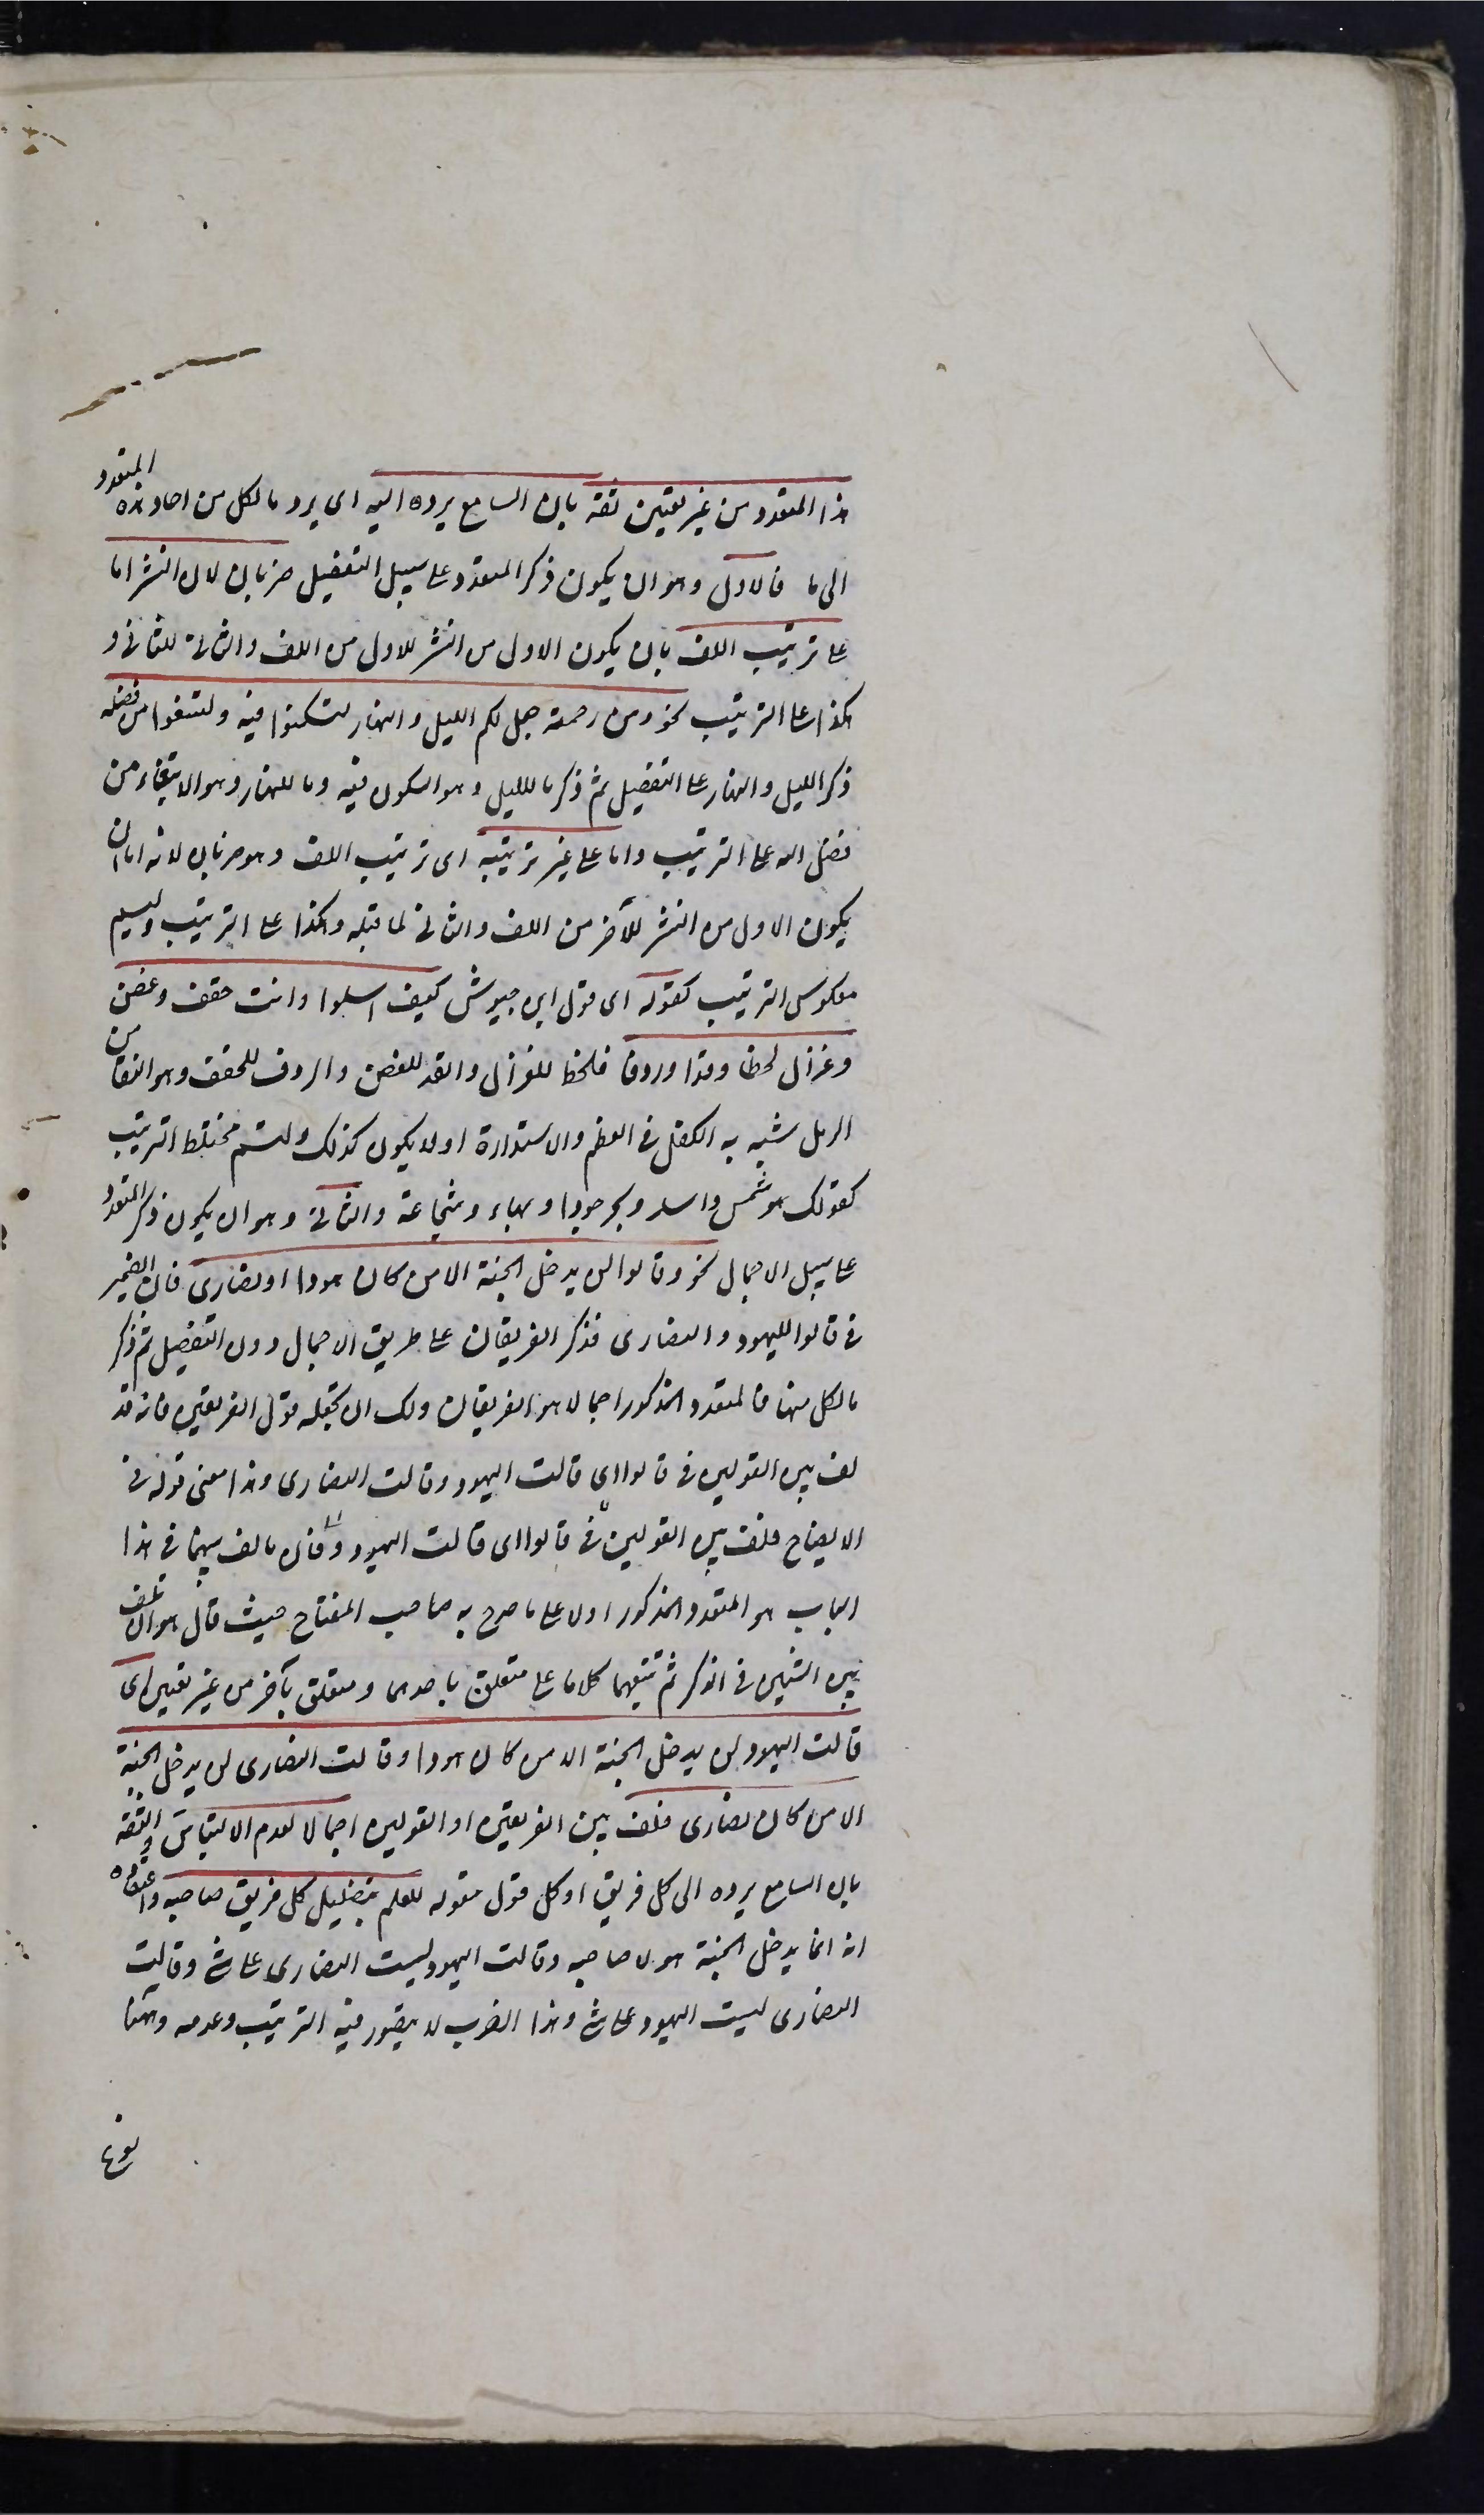 هذا المتعدد من غير تعيين ثقة بان السامع يرده اليه اى يرد ما لكل من احاد هذه المتعدد
الى ما فالاول وهو ان يكون ذكر المتعدد على سبيل التفصيل ضربان لان النشر اما
على ترتيب اللف بان يكون الاول من النشر للاول من اللف والثانى للثانى و
هكذا على الترتيب نحو ومن رحمته جعل لكم الليل والنهار لتسكنوا فيه ولتبتغوا من فضله
ذكر الليل والنهار على التفصيل ثم ذكر ما لليل وهو السكون فيه وما للنهار وهو الابتغاء من
فضل الله على الترتيب واما على غير ترتيبه اى ترتيب اللف وهو ضربان لانه اما ان
يكون الاول من النشر للآخر من اللف والثانى لما قبله وهكذا على الترتيب وليسم
معكوس الترتيب كقوله اى قول ابن حيوش كيف اسلوا وانت حقف وغصن
وغزال لحظا وقدا وردفا فلحظ للغزال والقد للغصن والردف للحقف وهو النقا من
الرمل شبه به الكفل فى العظم والاستدارة او لا يكون كذلك وليسم مختلط الترتيب
كقولك هو شمس واسد وبحر جودا وبهاء وشجاعة والثانى وهو ان يكون ذكر المتعدد
على سبيل الاجمال نحو وقالوا لن يدخل الجنة الا من كان هودا او نصارى فان الضمير
فى قالوا لليهود والنصارى فذكر الفريقان على طريق الاجمال دون التفصيل ثم ذكر
ما لكل منهما فالمتعدد المذكور اجمالا هو الفريقان ولك ان تجعله قول الفريقين فانه قد
لف بين القولين فى قالوا اى قالت اليهود وقالت النصارى وهذا معنى قوله فى
الايضاح فلف بين القولين فى قالوا اى قالت اليهود و فان ما لف بينهما فى هذا
الباب هو المتعدد المذكور اولا على ما صرح به صاحب المفتاح حيث قال هو ان تلف
بين الشيئين فى الذكر ثم تتبعهما كلاما على متعلق باحدهما ومتعلق بآخر من غير تعيين اى
قالت اليهود لن يدخل الجنة الا من كان هودا وقالت النصارى لن يدخل الجنة
الا من كان نصارى فلف بين الفريقين او القولين اجمالا لعدم الالتباس والثقة
بان السامع يرده الى كل فريق او كل قول مقوله للعلم بتضليل كل فريق صاحبه واعتقاده
انه انما يدخل الجنة هو لا صاحبه وقالت اليهود ليست النصارى على شئ وقالت
النصارى ليست اليهود على شئ وهذا الضرب لا يتصور فيه الترتيب وعدمه وههنا
نوع